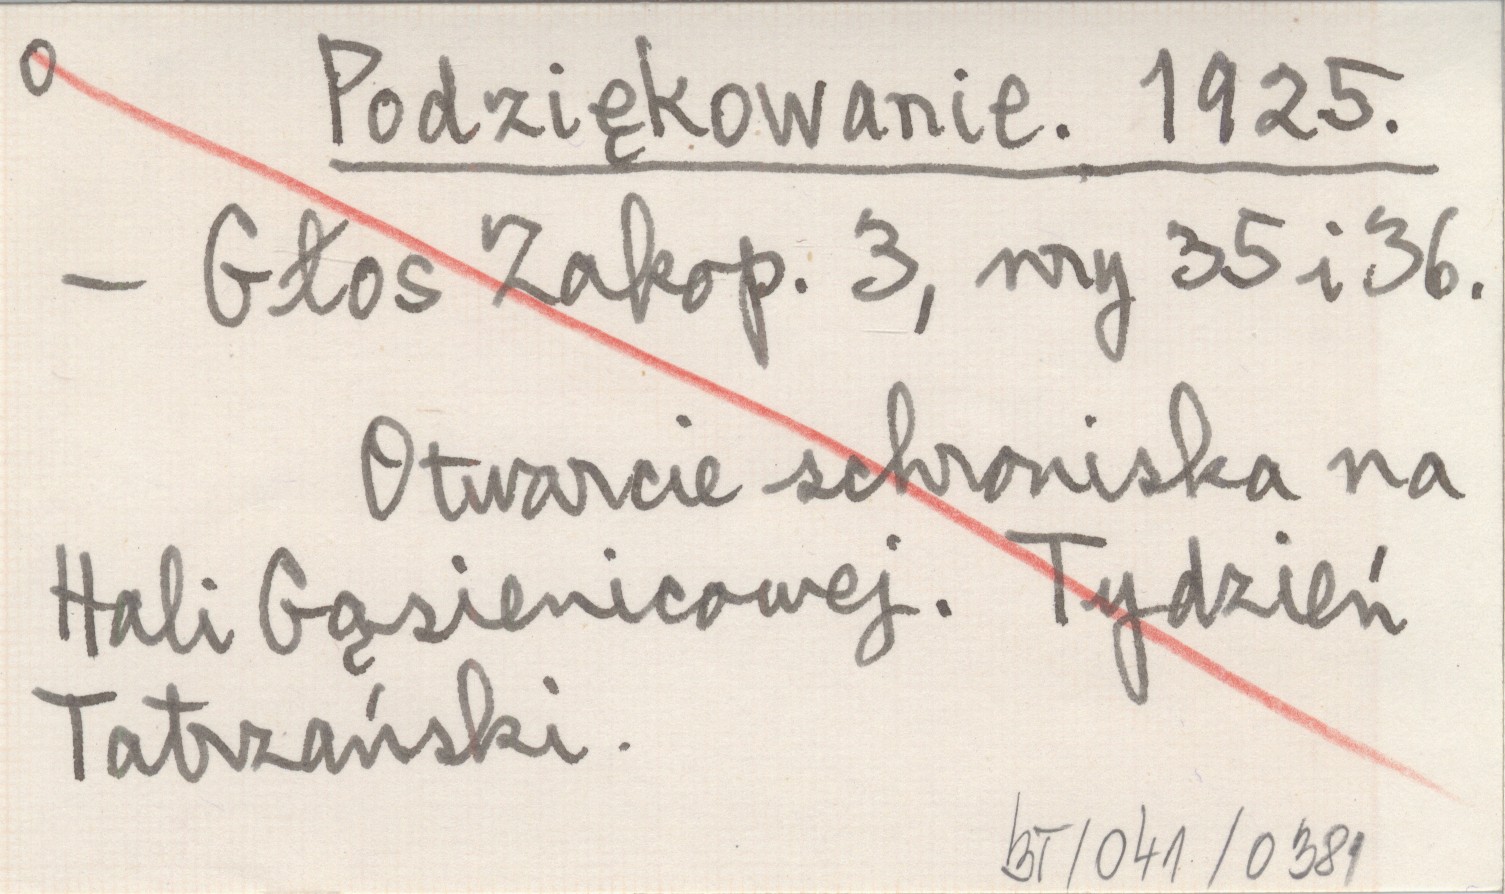 O Podziękowanie. 1925.
- Głos Zakop. 3, nry 35 i 36.
Otwarcie schroniska na
Hali Gąsienicowej. Tydzień
Tatrzański.
BT/041/0381